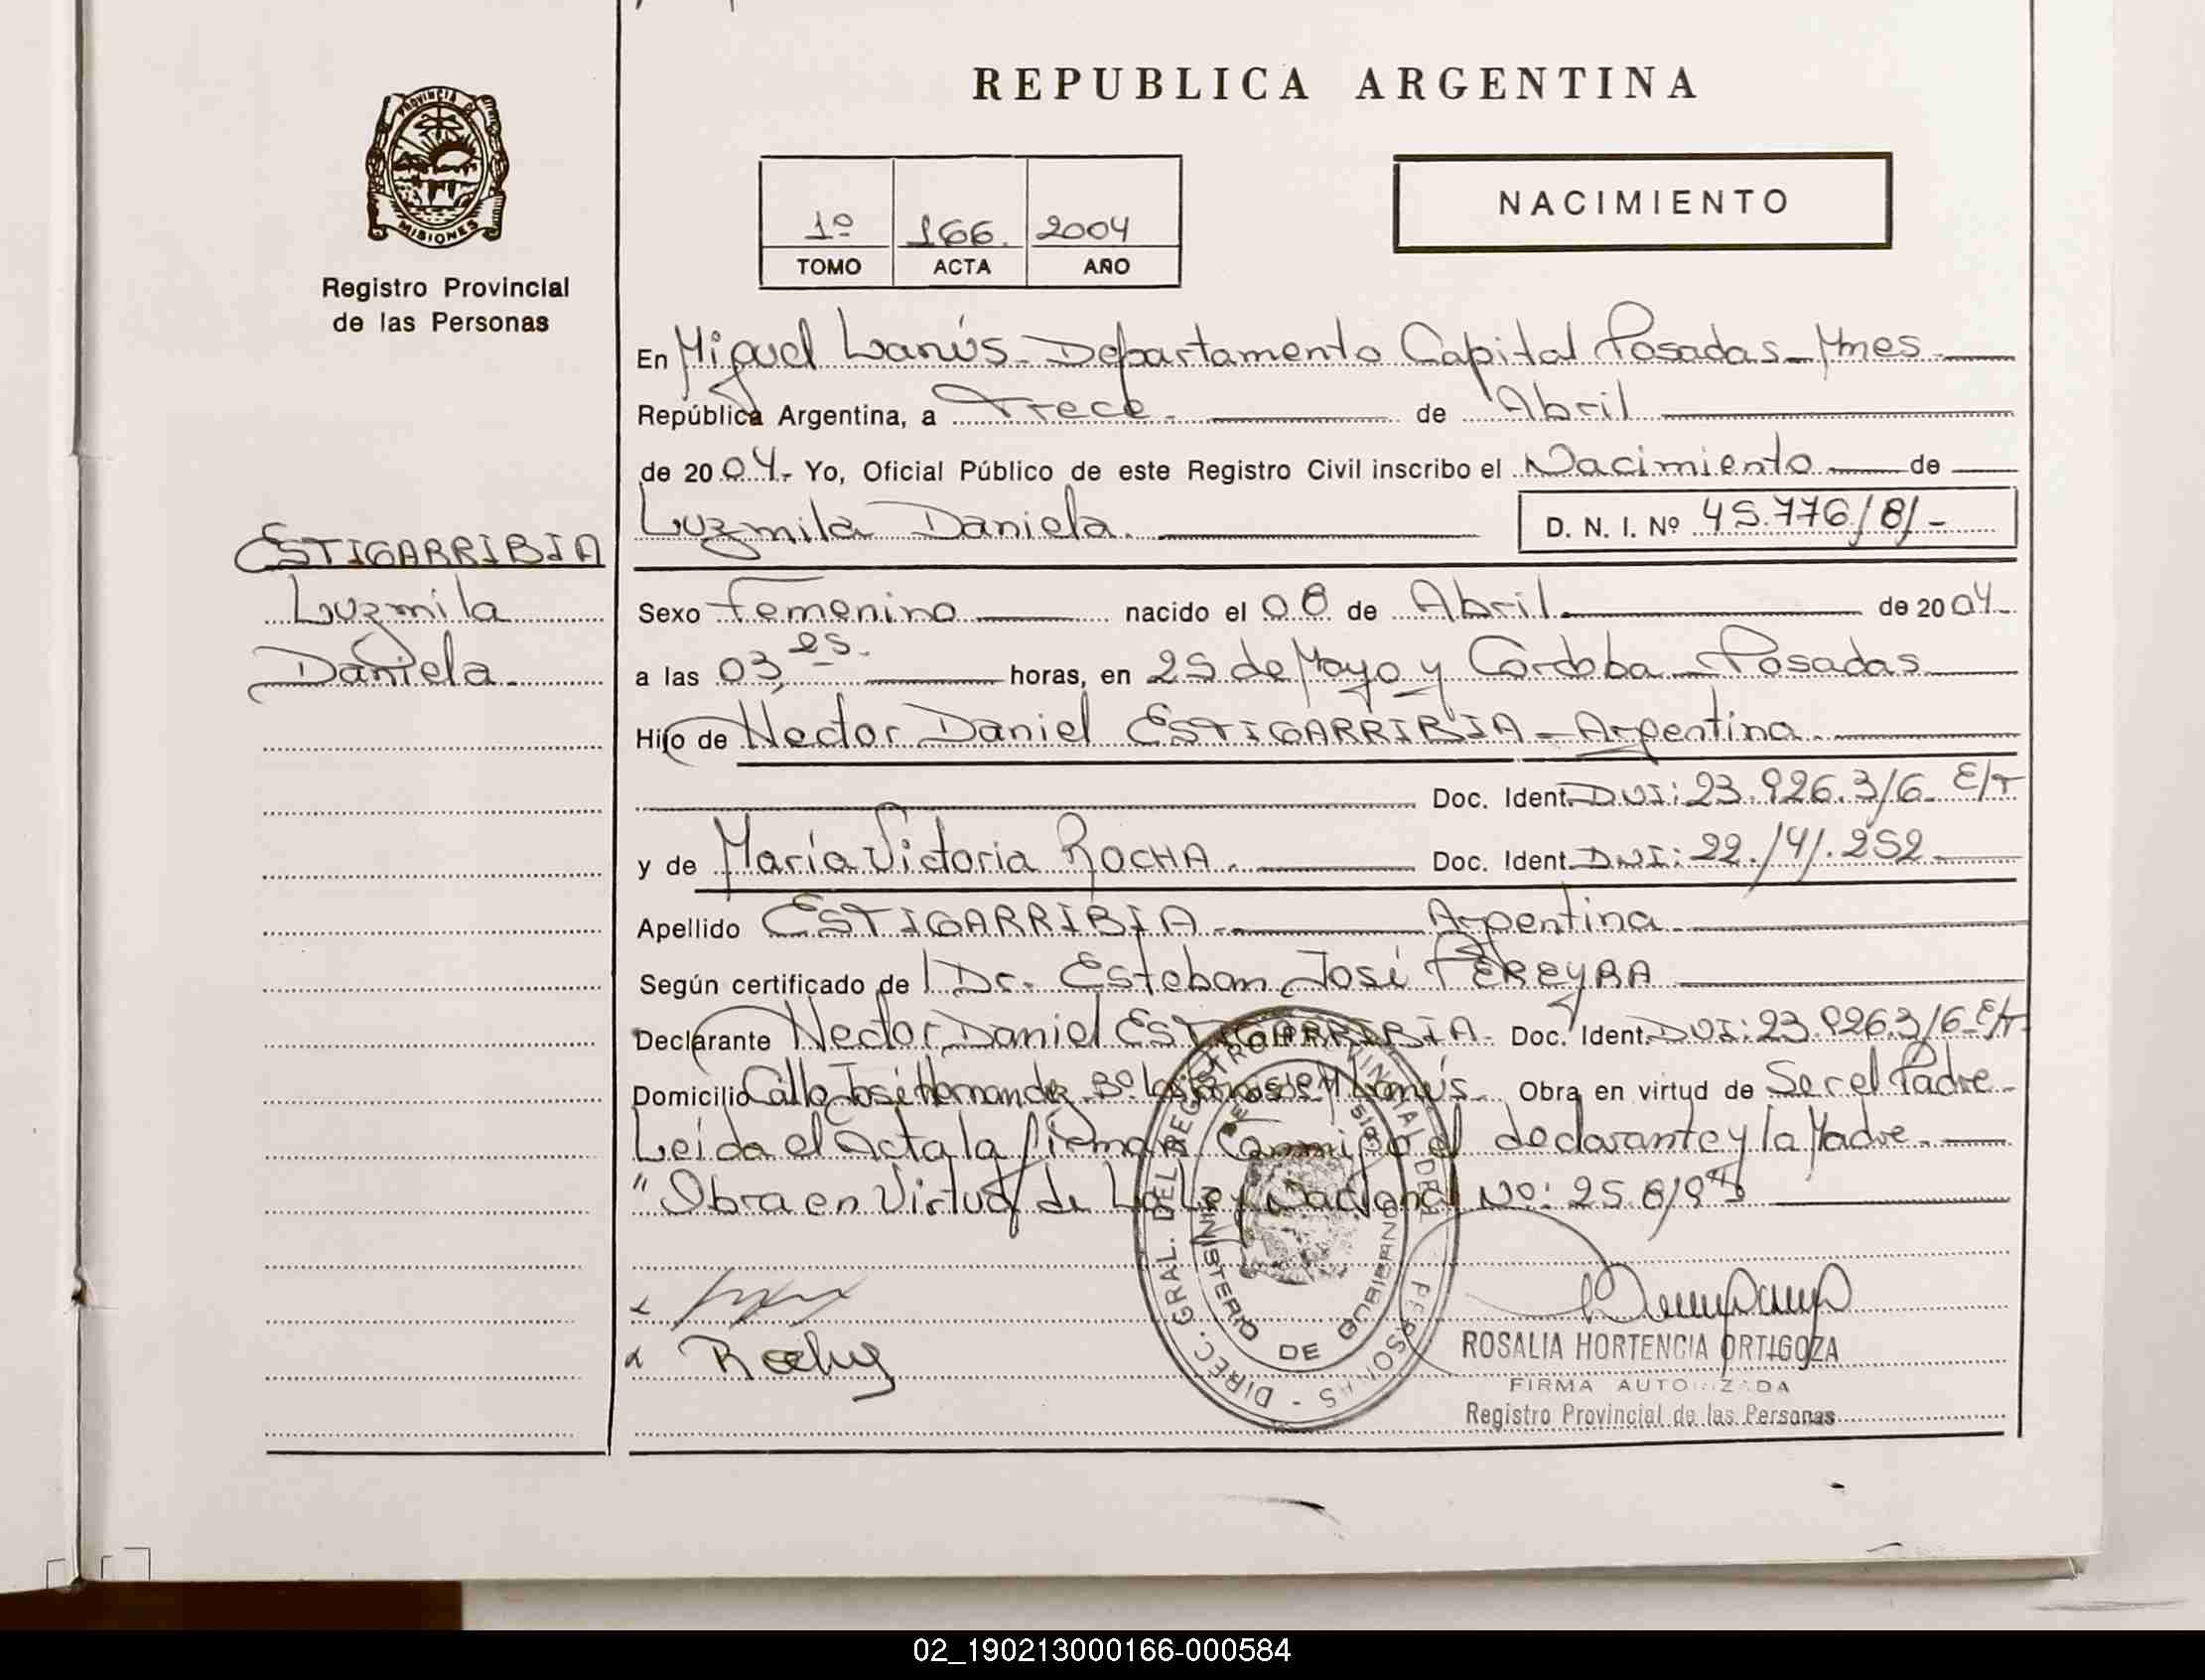 REPUBLICA ARGENTINA
PROVINCIA DE
MISIONES
Registro Provincial
de las Personas
1º 166. 2004
TOMO ACTA AÑO
NACIMIENTO
En Miguel Lanús - Departamento Capital Posadas - Mnes
República Argentina, a Trece de Abril
de 2004.- Yo, Oficial Público de este Registro Civil inscribo el Nacimiento de
Luzmila Daniela. D. N. I. Nº 45.776/8/-
ESTIGARRIBIA
Luzmila
Daniela
Sexo Femenino nacido el 08 de Abril de 2004
a las 03, es. horas, en 25 de Mayo y Córdoba - Posadas
Hijo de Hector Daniel ESTIGARRIBIA - Argentina
Doc. Ident. DNI: 23.926.3/6 E/T
y de María Victoria ROCHA. Doc. Ident. DNI: 22./4/.252
Apellido ESTIGARRIBIA Argentina
Según certificado de Dr. Esteban José PEREYRA
Declarante Hector Daniel ESTIGARRIBIA - Doc. Ident. DNI: 23.926.3/6 E/T
Domicilio Calle José Hernandez Bº M Lanús Obra en virtud de Ser el Padre
Leída el Acta la firman Conmigo el declarante y la Madre
"Obra en Virtud de La Ley Nacional Nº: 25.8/9"
DIREC. GRAL. DEL REGISTRO PROVINCIAL DE LAS PERSONAS
MINISTERIO DE GOBIERNO
ROSALIA HORTENCIA ORTIGOZA
FIRMA AUTORIZADA
Registro Provincial de las Personas
02_190213000166-000584